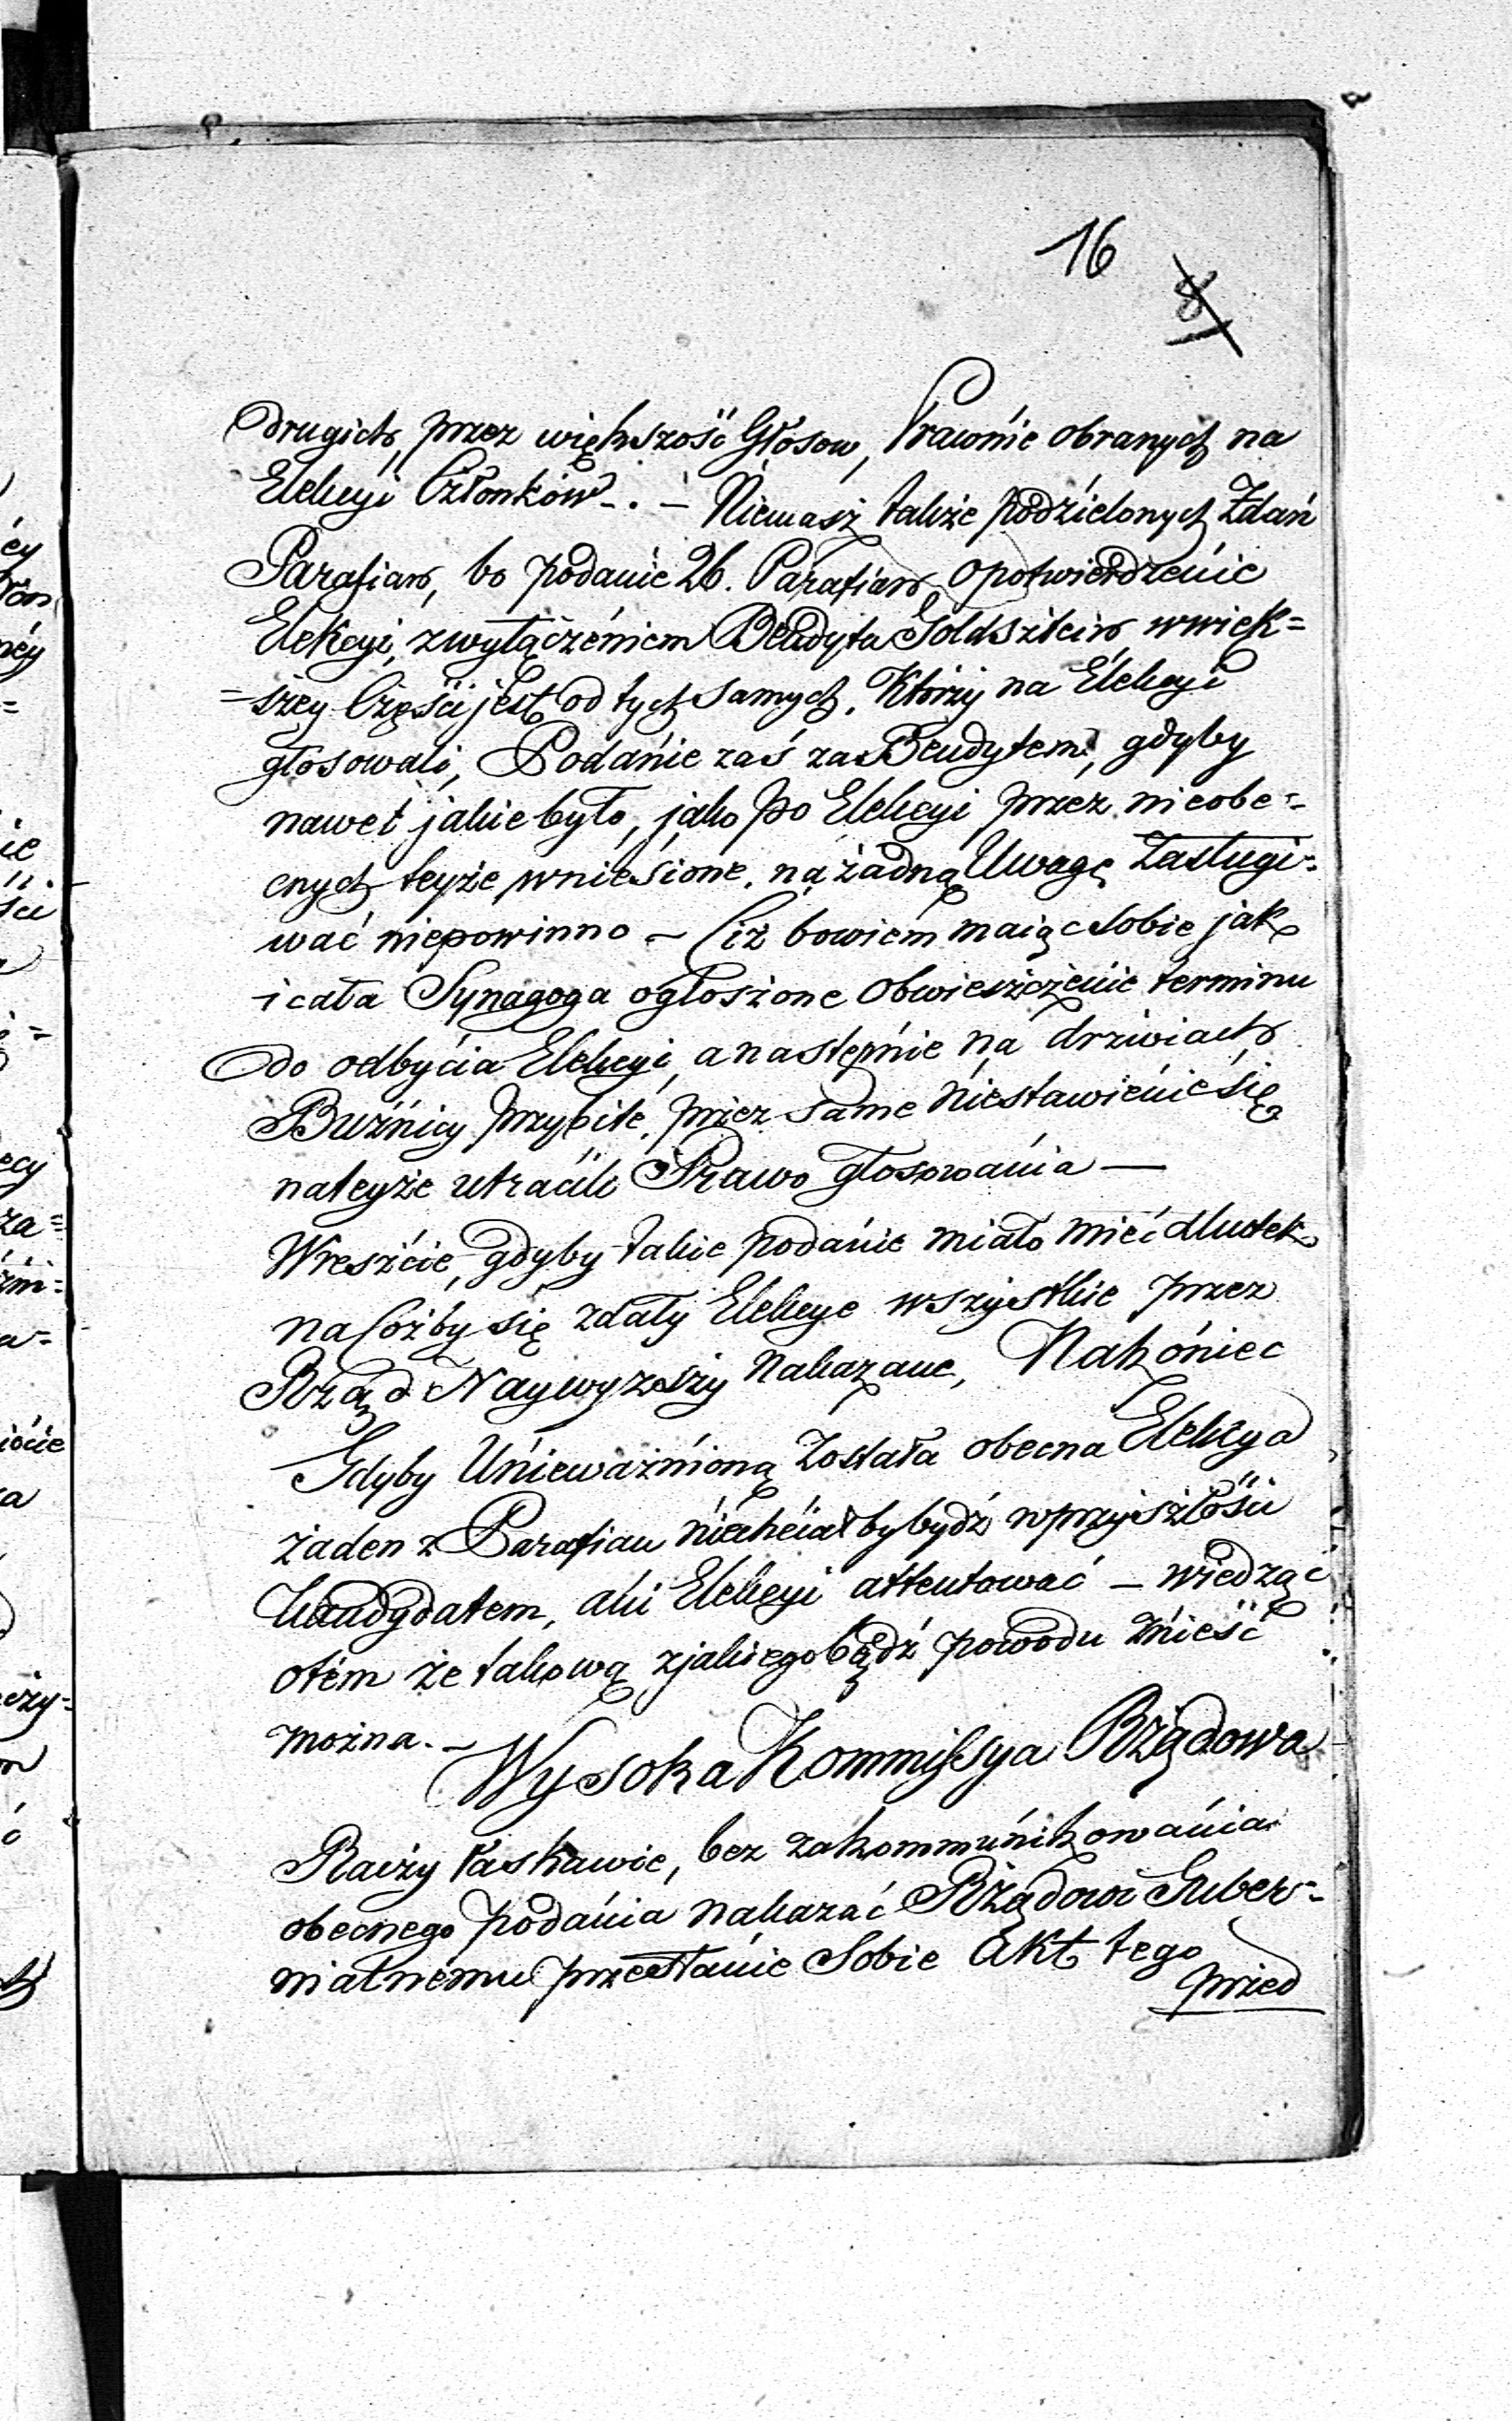 16
8
drugich, przez większość Głosow, Prawnie obranych na
Elekcyi Członków -. - Niemasz także podzielonych Zdań
Parafian, bo podanie 26. Parafian, o potwierdzenie
Elekcyi, zwyłączeniem Bendyta Goldsztein, wwięk=
=szey Części jest od tych samych, Którzy na Elekcyi
głosowali, Podanie zaś za Bendytem, gdyby
nawet jakie było, jako po Elekcyi przez nieobe=
cnych teyże wniesione, na żadną Uwagę Zasługi=
wać niepowinno - Ciż bowiem maiąc Sobie jak
i cała Synagoga ogłoszone obwieszczenie terminu
do odbycia Elekcyi, a następnie na drzwiach
Bużnicy przybite, przez same niestawienie się
nateyże utracili Prawo głosowania —
Wreszcie, gdyby takie podanie miało mieć skutek
na Cóżby się zdały Elekcye wszystkie przez
Rząd Naywyższy nakazane, Nakoniec
Gdyby Unieważnioną Została obecna Elekcya
żaden z Parafian niechciałby bydź wprzyszłości
Kandydatem, ani Elekcyi attentować - wiedząc
otem że takową zjakiegobądź powodu znieść
można. -
Wysoka Kommissya Rządowa
Raczy łaskawie, bez zakommunikowania
obecnego podania nakazać Rządowi Guber=
nialnemu przesłanie Sobie Akt tego
przed